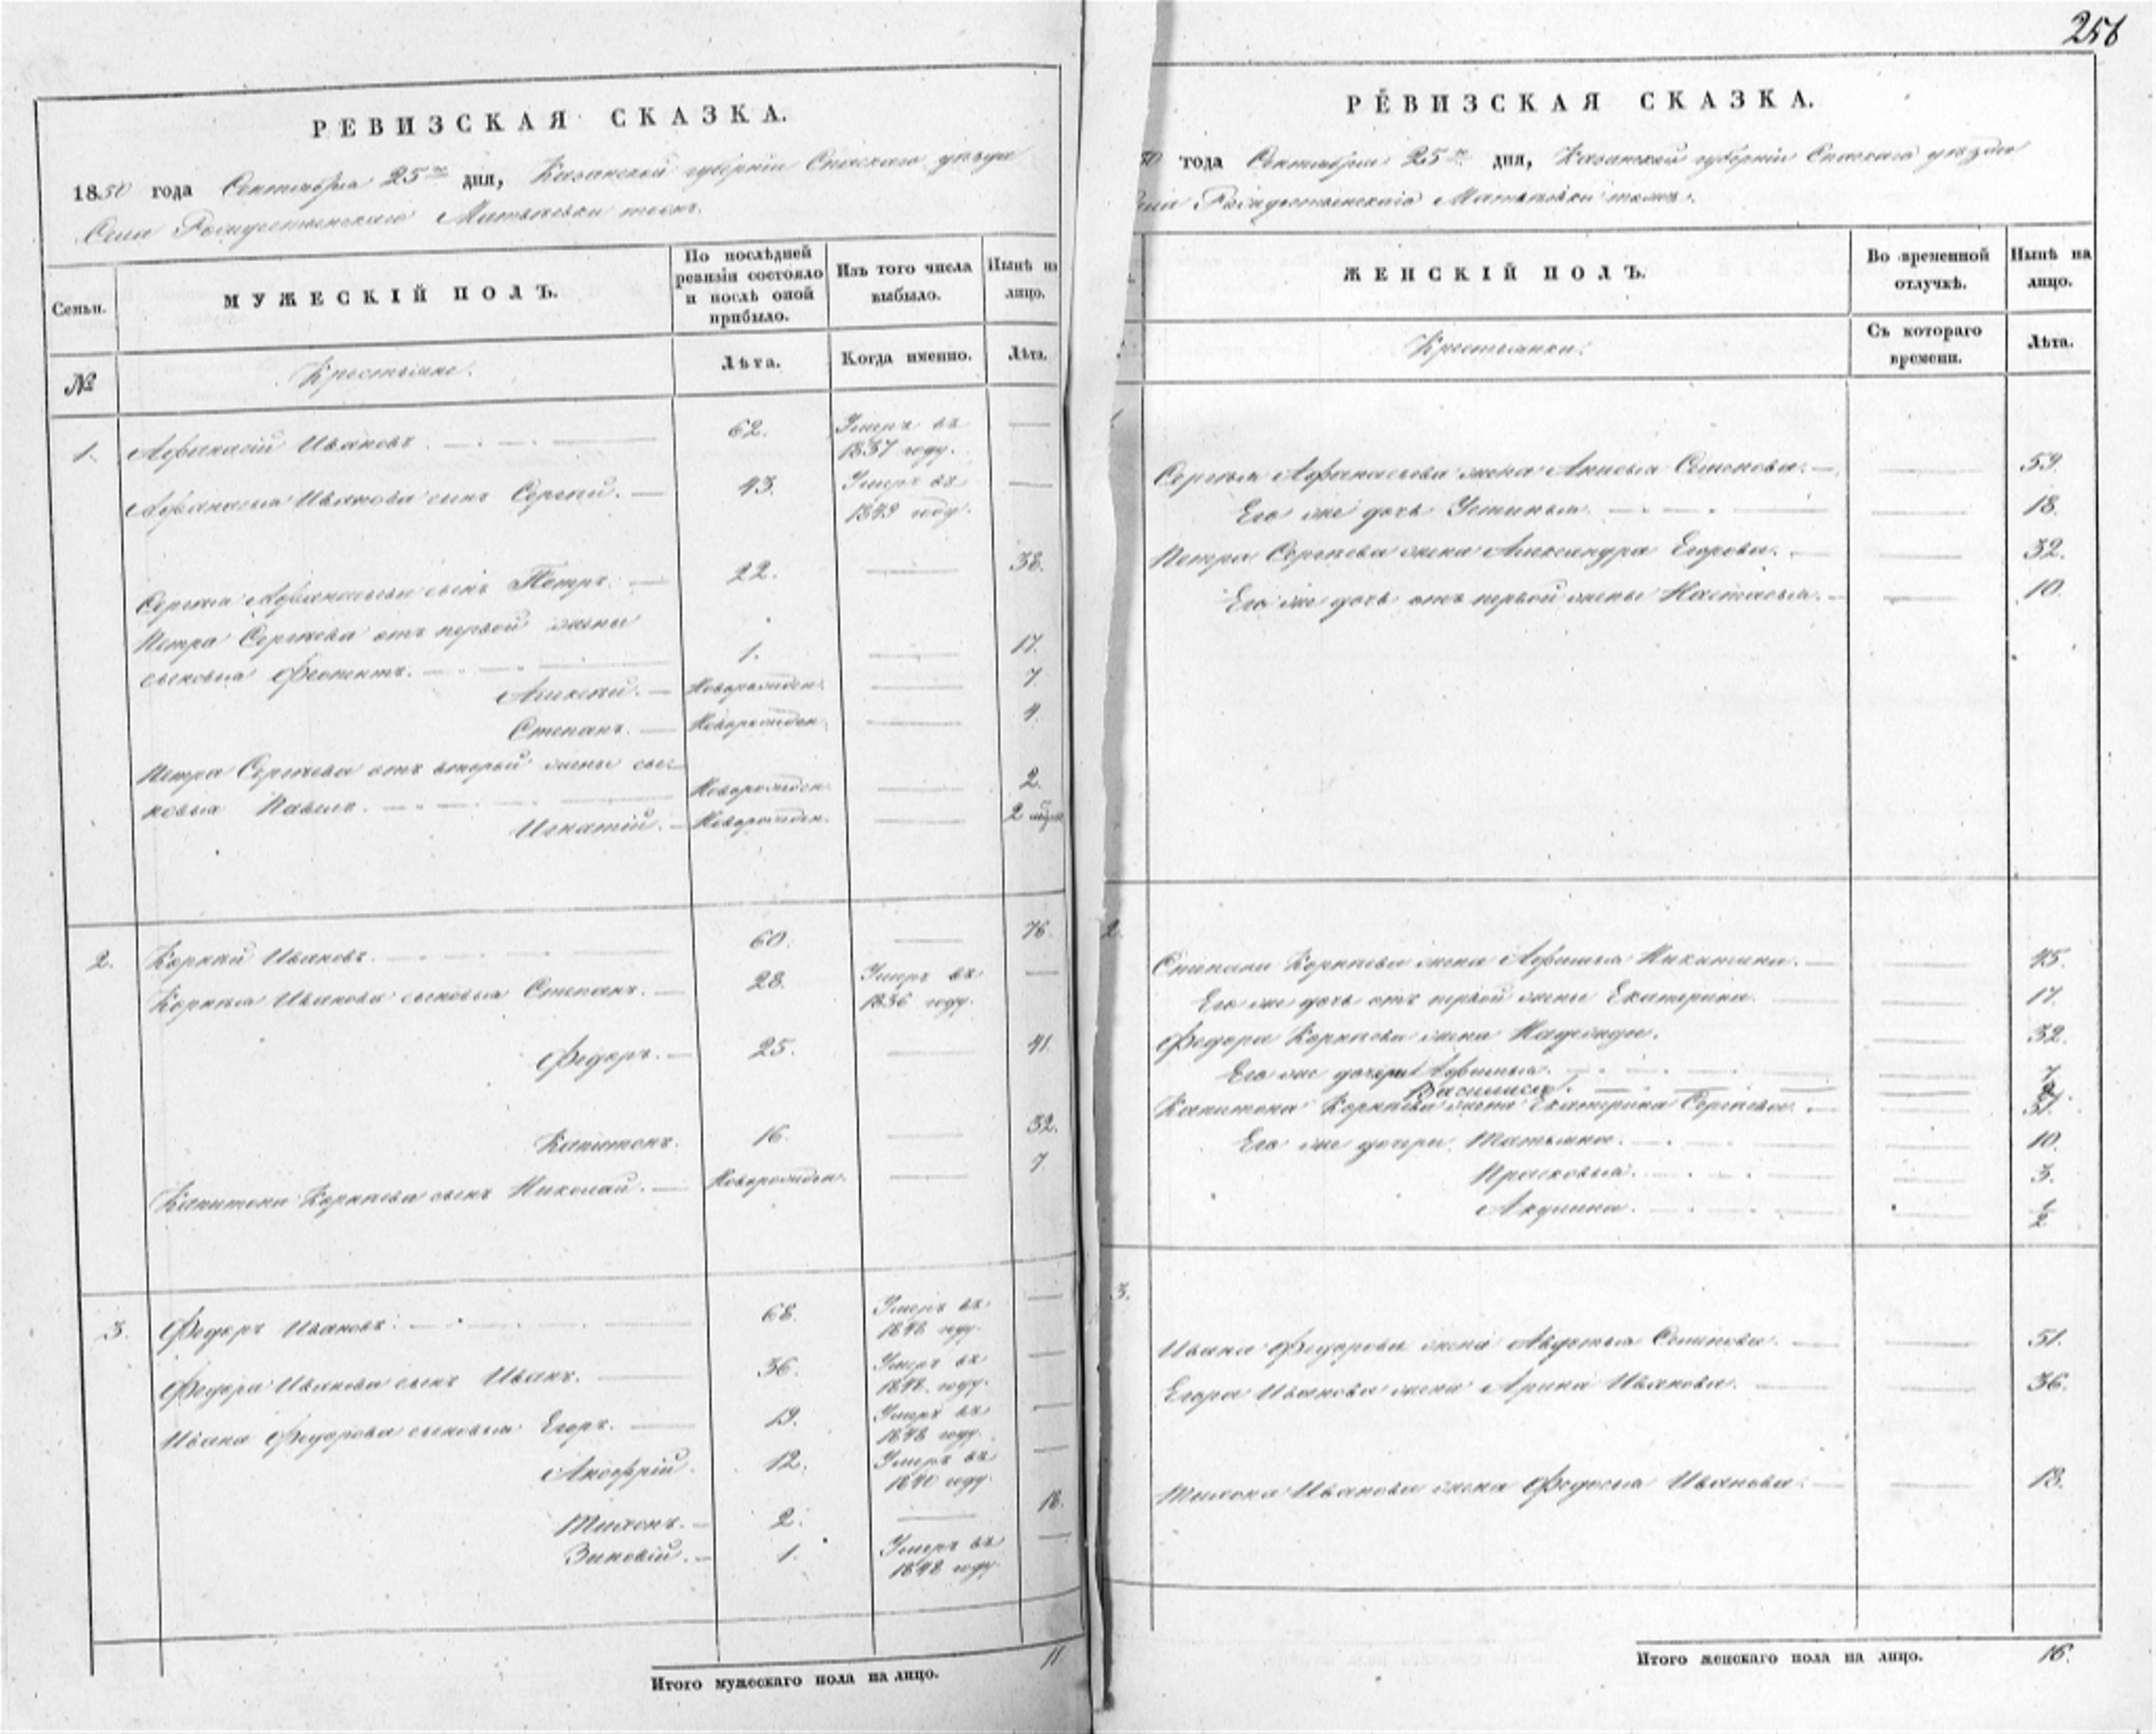 256
РЕВИЗСКАЯ СКАЗКА.
1850 года Сентября 25го дня, Казанской губернiи Спаскаго уѣзда
Села Рождественскаго Матвѣевки тожъ.
Семьи. МУЖЕСКIЙ ПОЛЪ. По послѣдней ревизiи состояло и послѣ оной прибыло. Изъ того числа выбыло. Нынѣ на лицо.
№ Крестьяне. Лѣта. Когда именно. Лѣта.
1. Афанасiй Ивановъ. 62. Умеръ въ 1837 году. —
Афанасья Иванова сынъ Сергей. 43. Умеръ въ 1849 году. —
Сергея Афанасьева сынъ Петръ. 22. — 38.
Петра Сергѣева отъ первой жены
сыновья Феоктистъ. 1. — 17.
Алексей. Новорожден. — 7.
Степанъ. Новорожден. — 4.
Петра Сергѣева отъ второй жены сы-
новья Павелъ. Новорожден. — 2.
Игнатiй. Новорожден. — 2
2. Корней Ивановъ. 60. — 76.
Корнея Иванова сыновья Степанъ. 28. Умеръ въ 1836 году. —
Федоръ. 25. — 41.
Капитонъ. 16. — 32.
Капитона Корнѣева сынъ Николай. Новорожден. — 7.
3. Федоръ Ивановъ. 68. Умеръ въ 1848 году. —
Федора Иванова сынъ Иванъ. 36. Умеръ въ 1848 году. —
Ивана Федорова сыновья Егоръ. 19. Умеръ въ 1848 году. —
Анофрiй. 12. Умеръ въ 1840 году. —
Тихонъ. 2. — 18.
Зиновiй. 1. Умеръ въ 1848 году. —
Итого мужескаго пола на лицо. 11.
РЕВИЗСКАЯ СКАЗКА.
50 года Сентября 25го дня, Казанской губернiи Спаскаго уѣзда
Села Рождественскаго Матвѣевки тожъ.
ЖЕНСКIЙ ПОЛЪ. Во временной отлучкѣ. Нынѣ на лицо.
Крестьянки. Съ котораго времени. Лѣта.
Сергея Афанасьева жена Анисья Семенова. — 59.
Его же дочь Устинья. — 18.
Петра Сергѣева жена Александра Егорова. — 32.
Его же дочь отъ первой жены Настасья. — 10.
2.
Степана Корнѣева жена Афимья Никитина. — 45.
Его же дочь отъ первой жены Екатерина. — 17.
Федора Корнѣева жена Надежда. — 32.
Его же дочери Афимья. — 7
Василиса. —
Капитона Корнѣева жена Екатерина Сергѣева. — 31.
Его же дочери Татьяна. — 10.
Прасковья. — 3.
Акулина. — 1/2
3.
Ивана Федорова жена Авдотья Семенова. — 51.
Егора Иванова жена Арина Иванова. — 36.
Тихона Иванова жена Федосья Иванова. — 18.
Итого женскаго пола на лицо. 16.